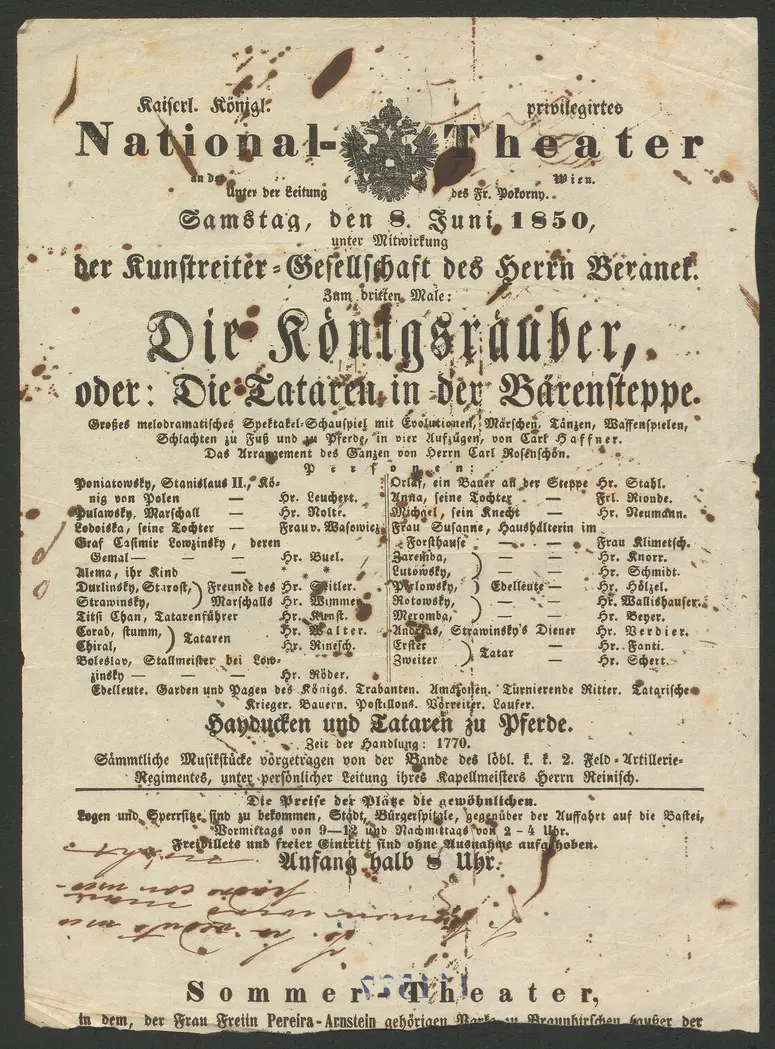 Kaiserl. Königl. privilegirtes
National-Theater
an der Wien.
Unter der Leitung des Fr. Pokorny.
Samstag, den 8. Juni 1850,
unter Mitwirkung
der Kunstreiter-Gesellschaft des Herrn Beranek.
Zum dritten Male:
Die Königsräuber,
oder: Die Tataren in der Bärensteppe.
Großes melodramatisches Spektakel-Schauspiel mit Evolutionen, Märschen, Tänzen, Waffenspielen,
Schlachten zu Fuß und zu Pferde, in vier Aufzügen, von Carl Haffner.
Das Arrangement des Ganzen von Herrn Carl Rosenschön.
Personen:
Poniatowsky, Stanislaus II., Kö-
nig von Polen — Hr. Leuchert.
Pulawsky, Marschall — Hr. Nolte.
Lodoiska, seine Tochter — Frau v. Wasowicz
Graf Casimir Lowzinsky, deren
Gemal — — — Hr. Buel.
Alema, ihr Kind — * *
Durlinsky, Starost, } Freunde des Hr.
Strawinsky, } Marschalls Hr. Wimmer
Titsi Chan, Tatarenführer Hr. Kunst.
Corab, stumm, } Tataren Hr. Walter.
Chiral, } Hr. Rinesch.
Boleslav, Stallmeister bei Low-
zinsky — — — Hr. Röder.
Orlaf, ein Bauer an der Steppe Hr. Stahl.
Anna, seine Tochter — Frl. Rionde.
Michael, sein Knecht — Hr. Neumann.
Frau Susanne, Haushälterin im
Forsthause — — Frau Klimetsch.
Zaremba, } — — Hr. Knorr.
Lutowsky, } Hr. Schmidt.
Perlowsky, } Edelleute — Hr. Hölzel.
Rotowsky, } — — Hr. Wallishauser.
Meromba, } — — Hr. Beyer.
Andreas, Strawinsky's Diener Hr. Verdier.
Erster } Tatar — Hr. Fanti.
Zweiter } — Hr. Schert.
Edelleute. Garden und Pagen des Königs. Trabanten. Amazonen. Türnierende Ritter. Tatarische
Krieger. Bauern. Postillons. Vorreiter. Laufer.
Hayducken und Tataren zu Pferde.
Zeit der Handlung: 1770.
Sämmtliche Musikstücke vorgetragen von der Bande des löbl. k. k. 2. Feld-Artillerie-
Regimentes, unter persönlicher Leitung ihres Kapellmeisters Herrn Reinisch.
Die Preise der Plätze die gewöhnlichen.
Logen und Sperrsitze sind zu bekommen, Stadt, Bürgerspitale, gegenüber der Auffahrt auf die Bastei,
Vormittags von 9—12 und Nachmittags von 2-4 Uhr.
Freibillets und freier Eintritt sind ohne Ausnahme aufgehoben.
Anfang halb 8 Uhr.
Sommer-Theater,
in dem, der Frau Freiin Pereira-Arnstein gehörigen Parke zu Braunhirschen, außer der